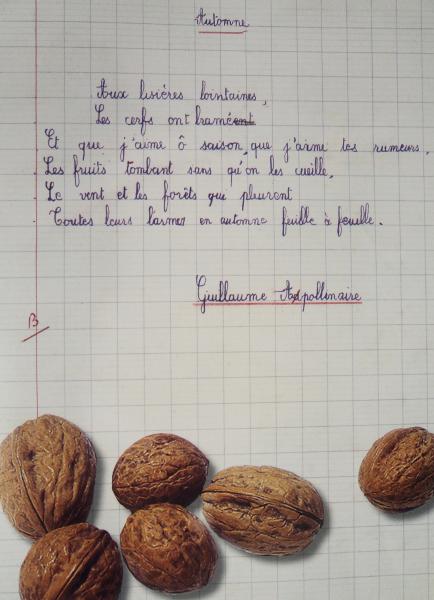 Automne
Aux lisières lointaines,
Les cerfs ont bramé
Et que j'aime ô saison, que j'aime tes rumeurs,
Les fruits tombant sans qu'on les cueille,
Le vent et les forêts que pleurent
Toutes leurs larmes en automne feuille à feuille.
Guillaume Appollinaire
B